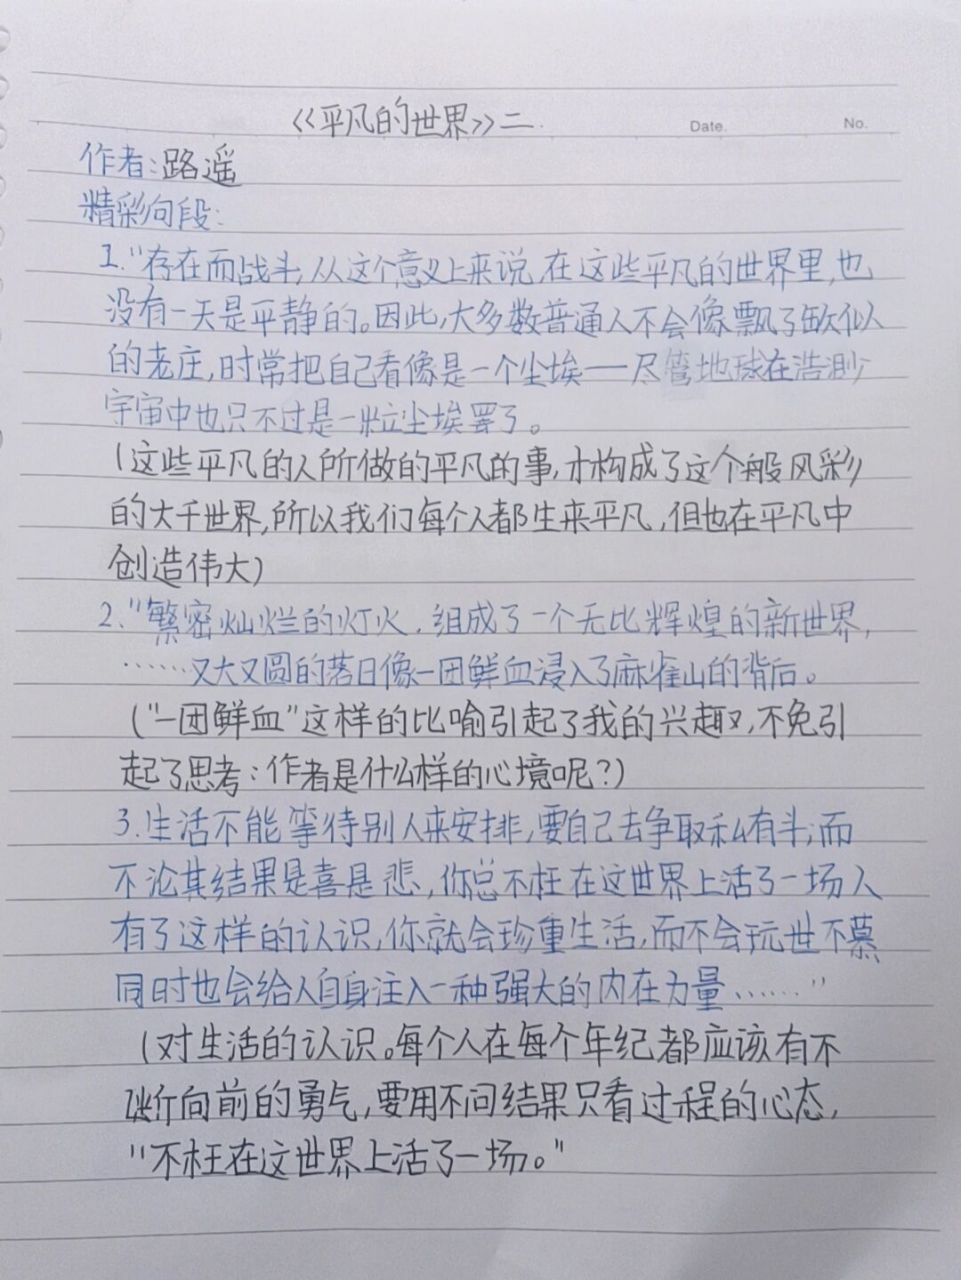 《平凡的世界》二.
Date.
No.
作者:路遥
精彩句段:
1."存在而战斗,从这个意义上来说,在这些平凡的世界里,也
没有一天是平静的。因此,大多数普通人不会像飘了欲似
的老庄,时常把自己看像是一个尘埃——尽管地球在浩渺
宇宙中也只不过是一粒尘埃罢了。
(这些平凡的人所做的平凡的事,才构成了这个般风彩
的大千世界,所以我们每个人都生来平凡,但也在平凡中
创造伟大)
2."繁密灿烂的灯火,组成了一个无比辉煌的新世界,
……又大又圆的落日像一团鲜血浸入了麻雀山的背后。
("一团鲜血"这样的比喻引起了我的兴趣,不免引
起了思考:作者是什么样的心境呢?)
3.生活不能等待别人来安排,要自己去争取和有斗;而
不沦其结果是喜是悲,你总不枉在这世界上活了一场人
有了这样的认识,你就会珍重生活,而不会玩世不慕
同时也会给人自身注入一种强大的内在力量……"
(对生活的认识。每个人在每个年纪都应该有不
断向前的勇气,要用不问结果只看过程的心态,
"不枉在这世界上活了一场。"